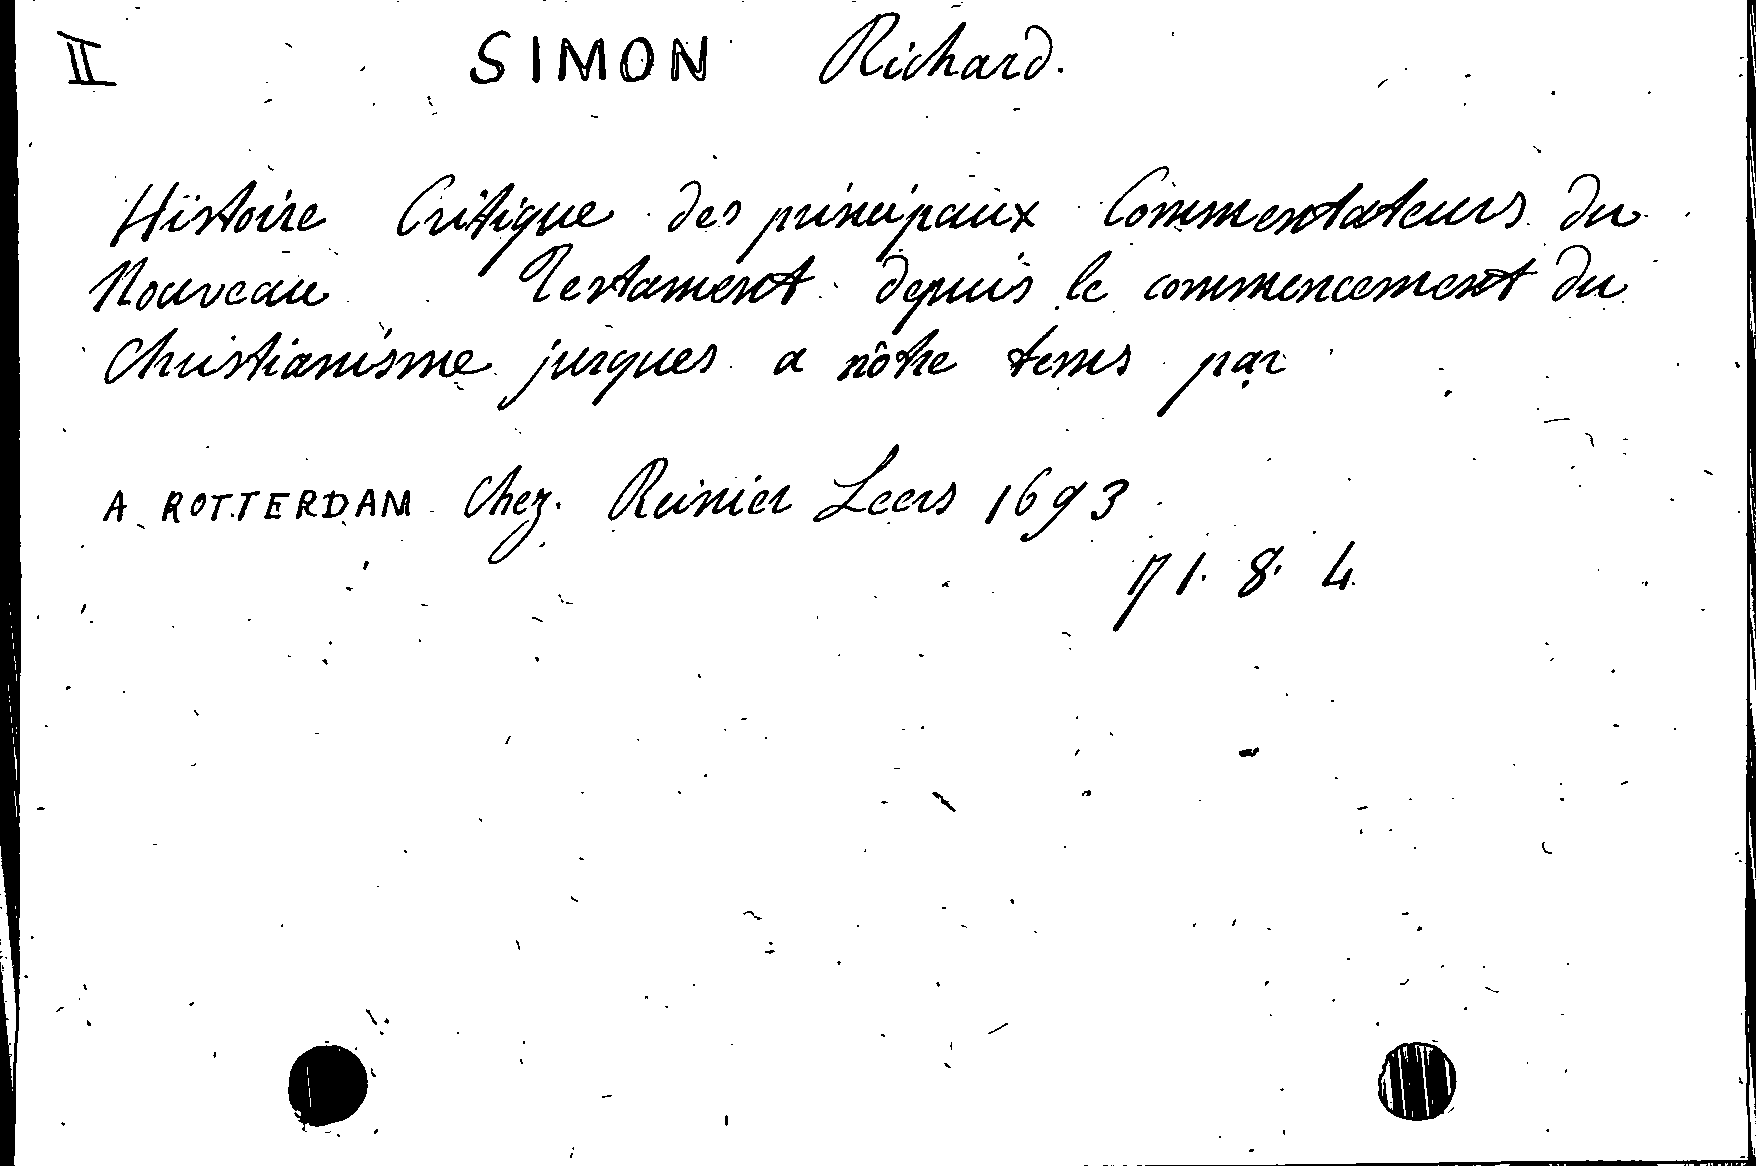 II SIMON Richard.
Histoire Critique des principaux Commentateurs du
Nouveau Testament depuis le commencement du
Christianisme jusques a nôtre tems par
A ROTTERDAM Chez. Reinier Leers 1693
71. 8. 4